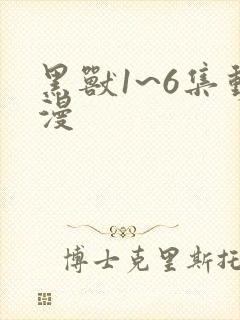 黑獸1~6集動
漫
博士克里斯托